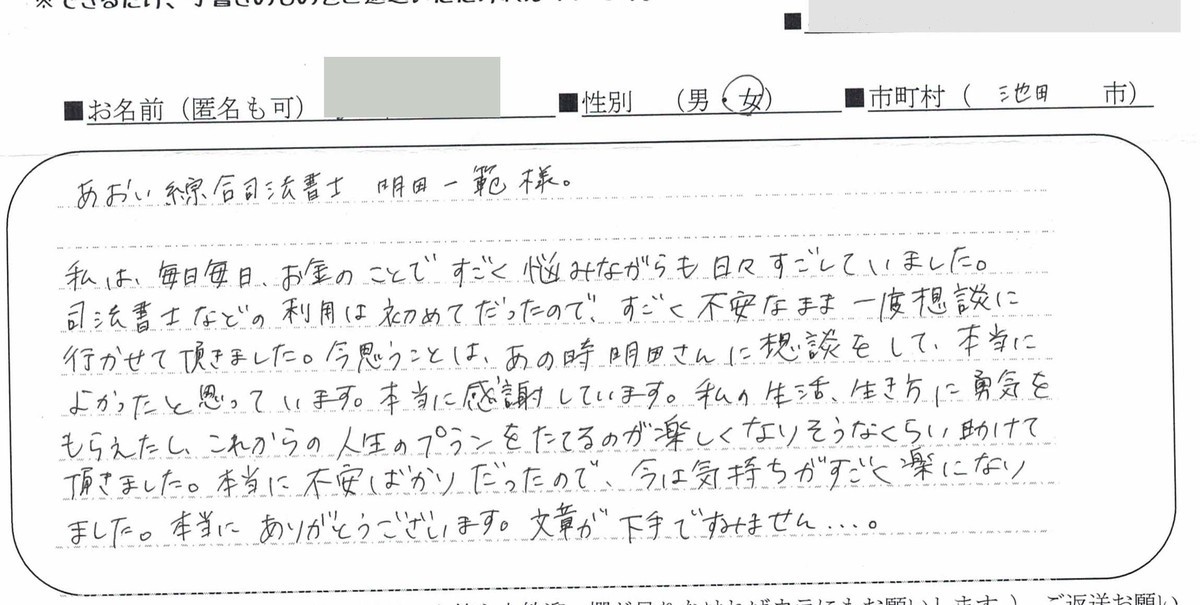 ■お名前（匿名も可） ■性別 （男・女） ■市町村（ 池田 市）
あおい綜合司法書士 明田一範様。
私は、毎日毎日、お金のことですごく悩みながらも日々すごしていました。
司法書士などの利用は初めてだったので、すごく不安なまま一度想談に
行かせて頂きました。今思うことは、あの時明田さんに想談をして、本当に
よかったと思っています。本当に感謝しています。私の生活、生き方に勇気を
もらえたし、これからの人生のプランをたてるのが楽しくなりそうなくらい助けて
頂きました。本当に不安ばかりだったので、今は気持ちがすごく楽になり
ました。本当にありがとうございます。文章が下手ですみません....。